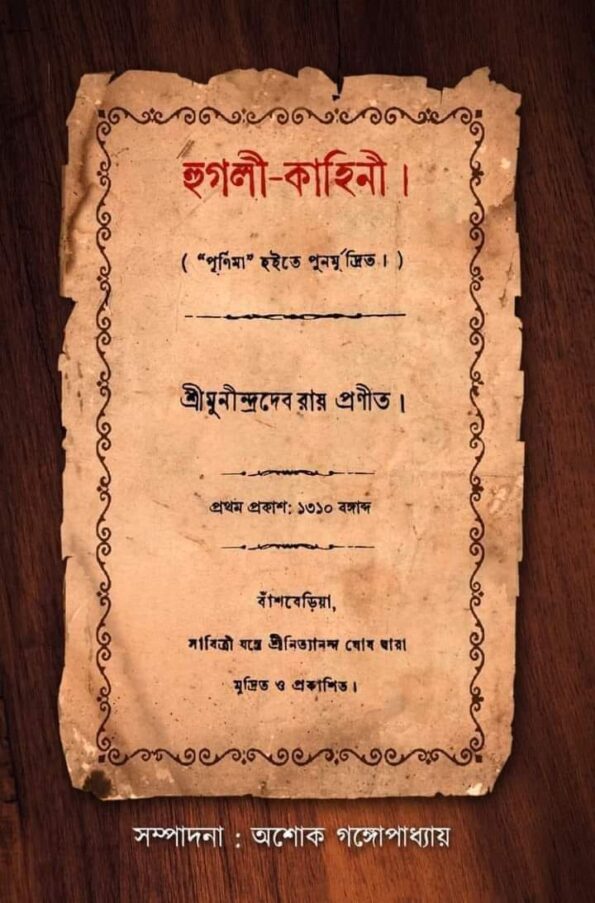 হুগলী-কাহিনী।
( “পূর্ণিমা” হইতে পুনর্মুদ্রিত। )
শ্রীমুনীন্দ্রদেব রায় প্রণীত।
প্রথম প্রকাশ: ১৩১০ বঙ্গাব্দ
বাঁশবেড়িয়া,
সাবিত্রী যন্ত্রে শ্রীনিত্যানন্দ ঘোষ দ্বারা
মুদ্রিত ও প্রকাশিত।
সম্পাদনা : অশোক গঙ্গোপাধ্যায়